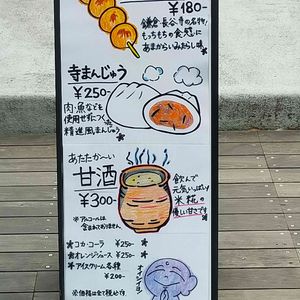 ¥180-
鎌倉・長谷寺の名物!
もっちもちの食感に
あまからいみたらし味
寺まんじゅう
¥250-
肉・魚などを
使用せずにつくる
精進風まんじゅう
あたたか〜い
甘酒
¥300-
※アルコールは
含まれておりません
飲んで
元気いっぱい!
米糀の
優しい甘さです
コカ・コーラ ¥250-
オレンジジュース ¥250-
アイスクリーム各種
¥200-
※価格は全て税込です。